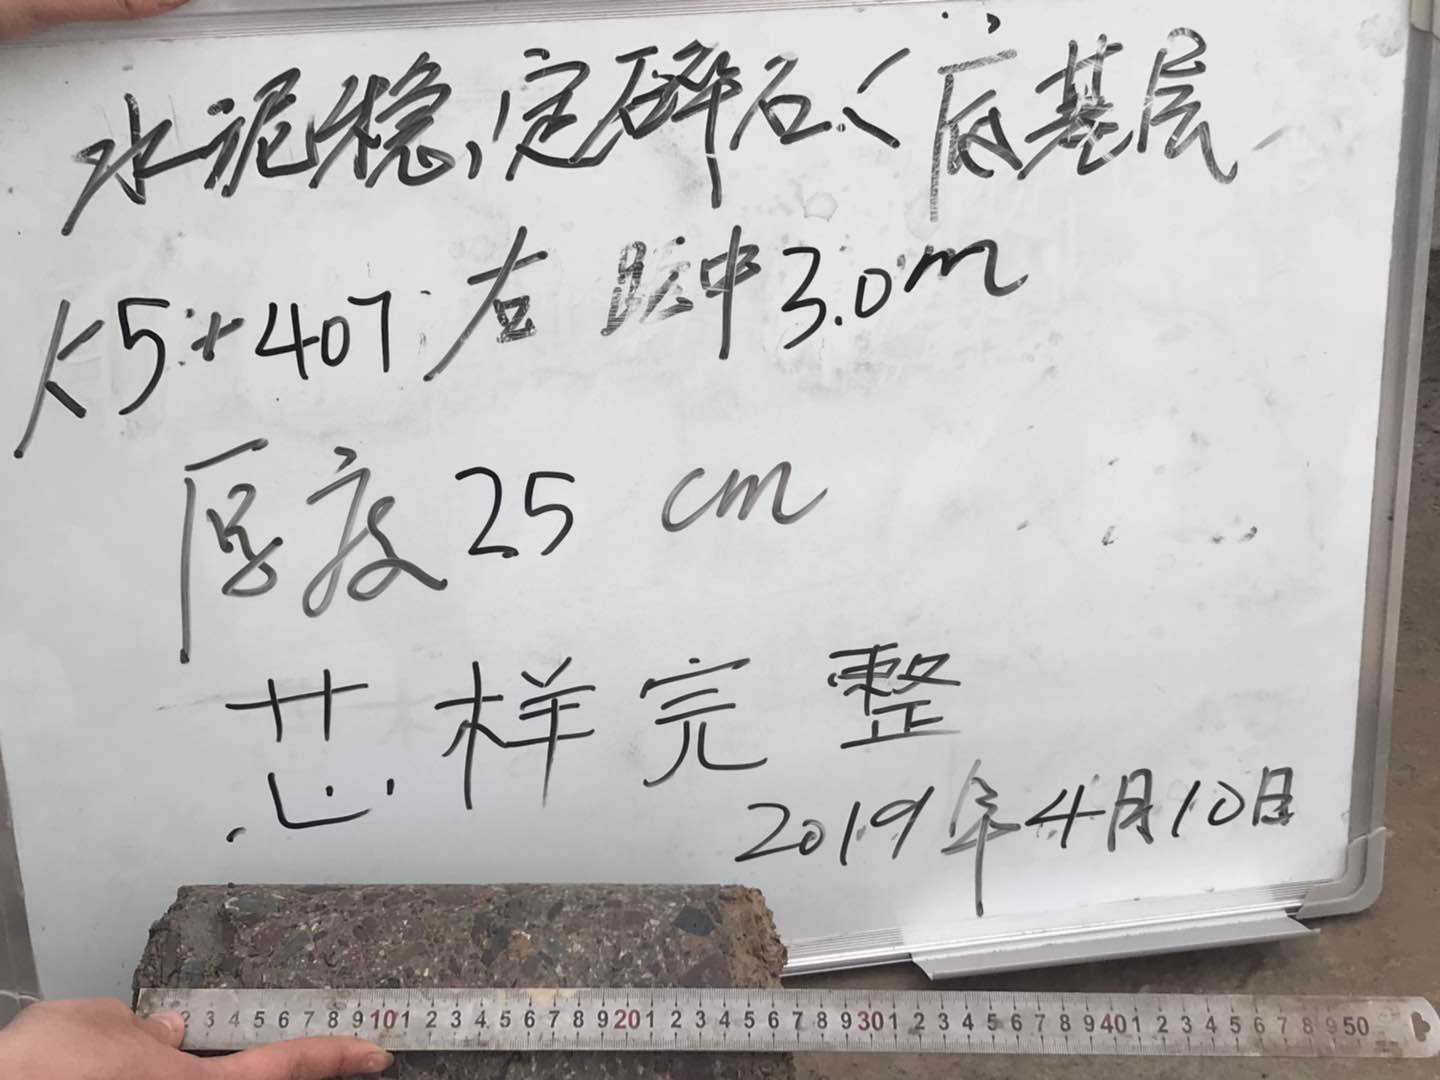 水泥稳定碎石(底基层
K5+407右距中3.0m
厚度25cm
芯样完整
2019年4月10日
2 3 4 5 6 7 8 9 10 1 2 3 4 5 6 7 8 9 20 1 2 3 4 5 6 7 8 9 30 1 2 3 4 5 6 7 8 9 40 1 2 3 4 5 6 7 8 9 50